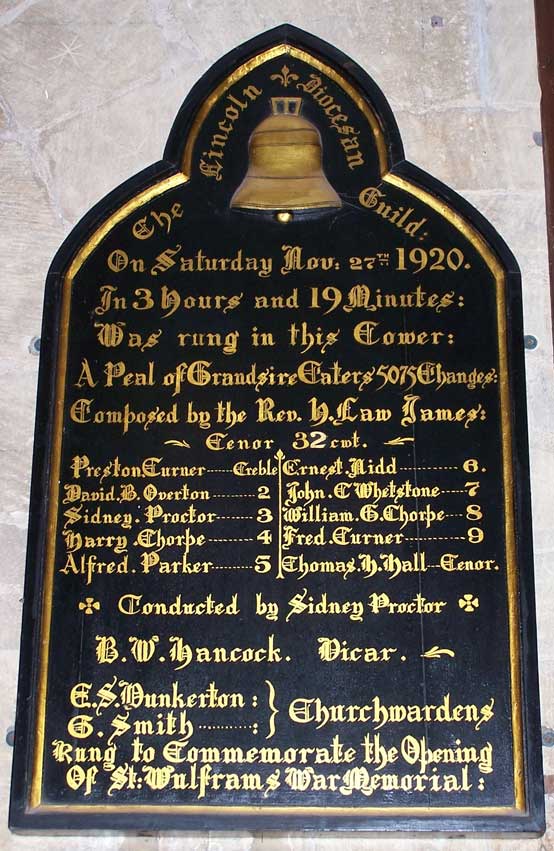 The Lincoln Diocesan Guild:
On Saturday Nov: 27TH 1920.
In 3 Hours and 19 Minutes:
Was rung in this Tower:
A Peal of Grandsire Caters 5075 Changes:
Composed by the Rev. H. Law James:
Tenor 32 cwt.
Preston Turner ------ Treble Ernest. Nidd ------------ 6.
David. B. Overton ------------ 2 John. C Whetstone ------ 7
Sidney. Proctor ---------- 3 William. G. Thorpe ---- 8
Harry. Thorpe ------------ 4 Fred. Turner ------------ 9
Alfred. Parker ---------- 5 Thomas. H. Hall --- Tenor.
Conducted by Sidney Proctor
B. W. Hancock. Vicar.
E. S. Dunkerton : } Churchwardens
G. Smith ............ :
Rung to Commemorate the Opening
Of St: Wulframs War Memorial :